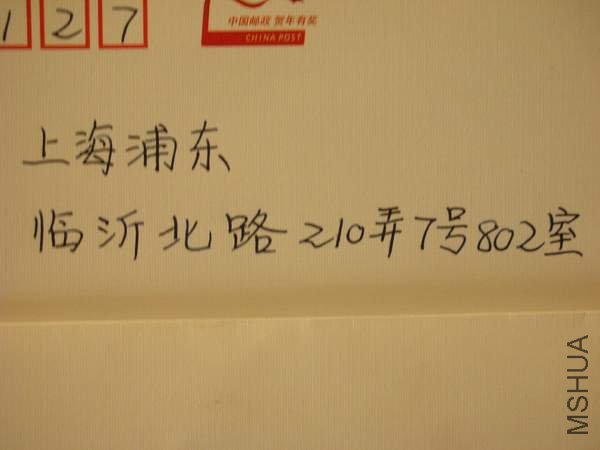 127
中国邮政 贺年有奖
CHINA POST
上海浦东
临沂北路210弄7号802室
MSHUA